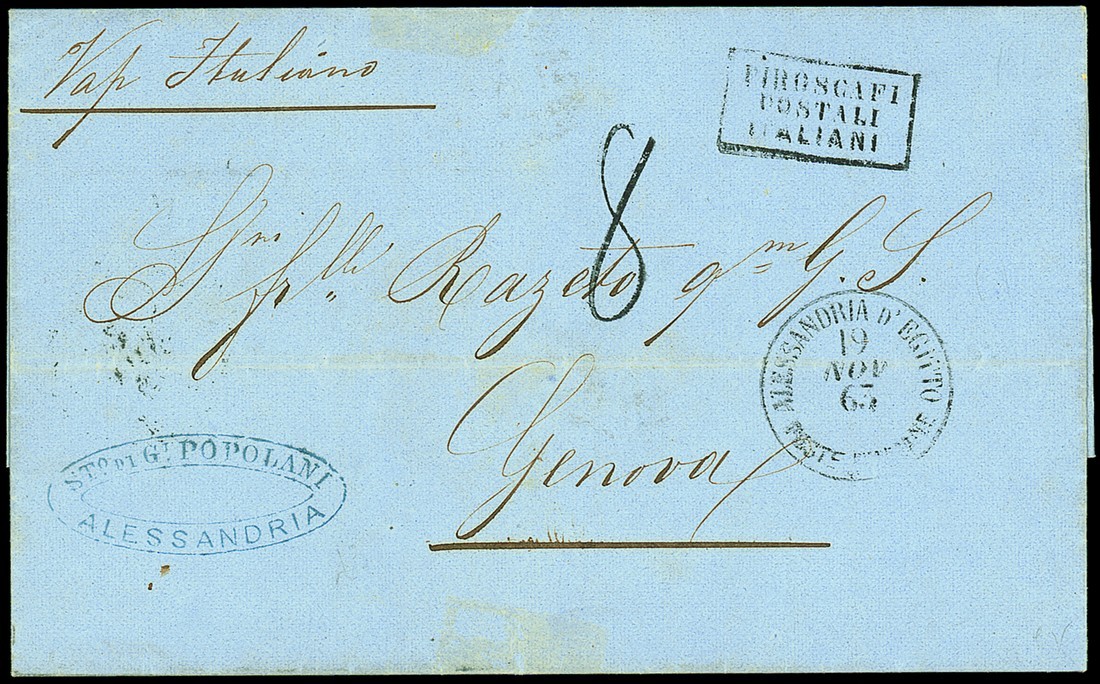 Vap Italiano
PIROSCAFI
POSTALI
ITALIANI
8
Sgm flli Razeto qm G. S.
Genova
ALESSANDRIA D'EGITTO
19
NOV
65
POSTE ITALIANE
STO. DI GI. POPOLANI
ALESSANDRIA